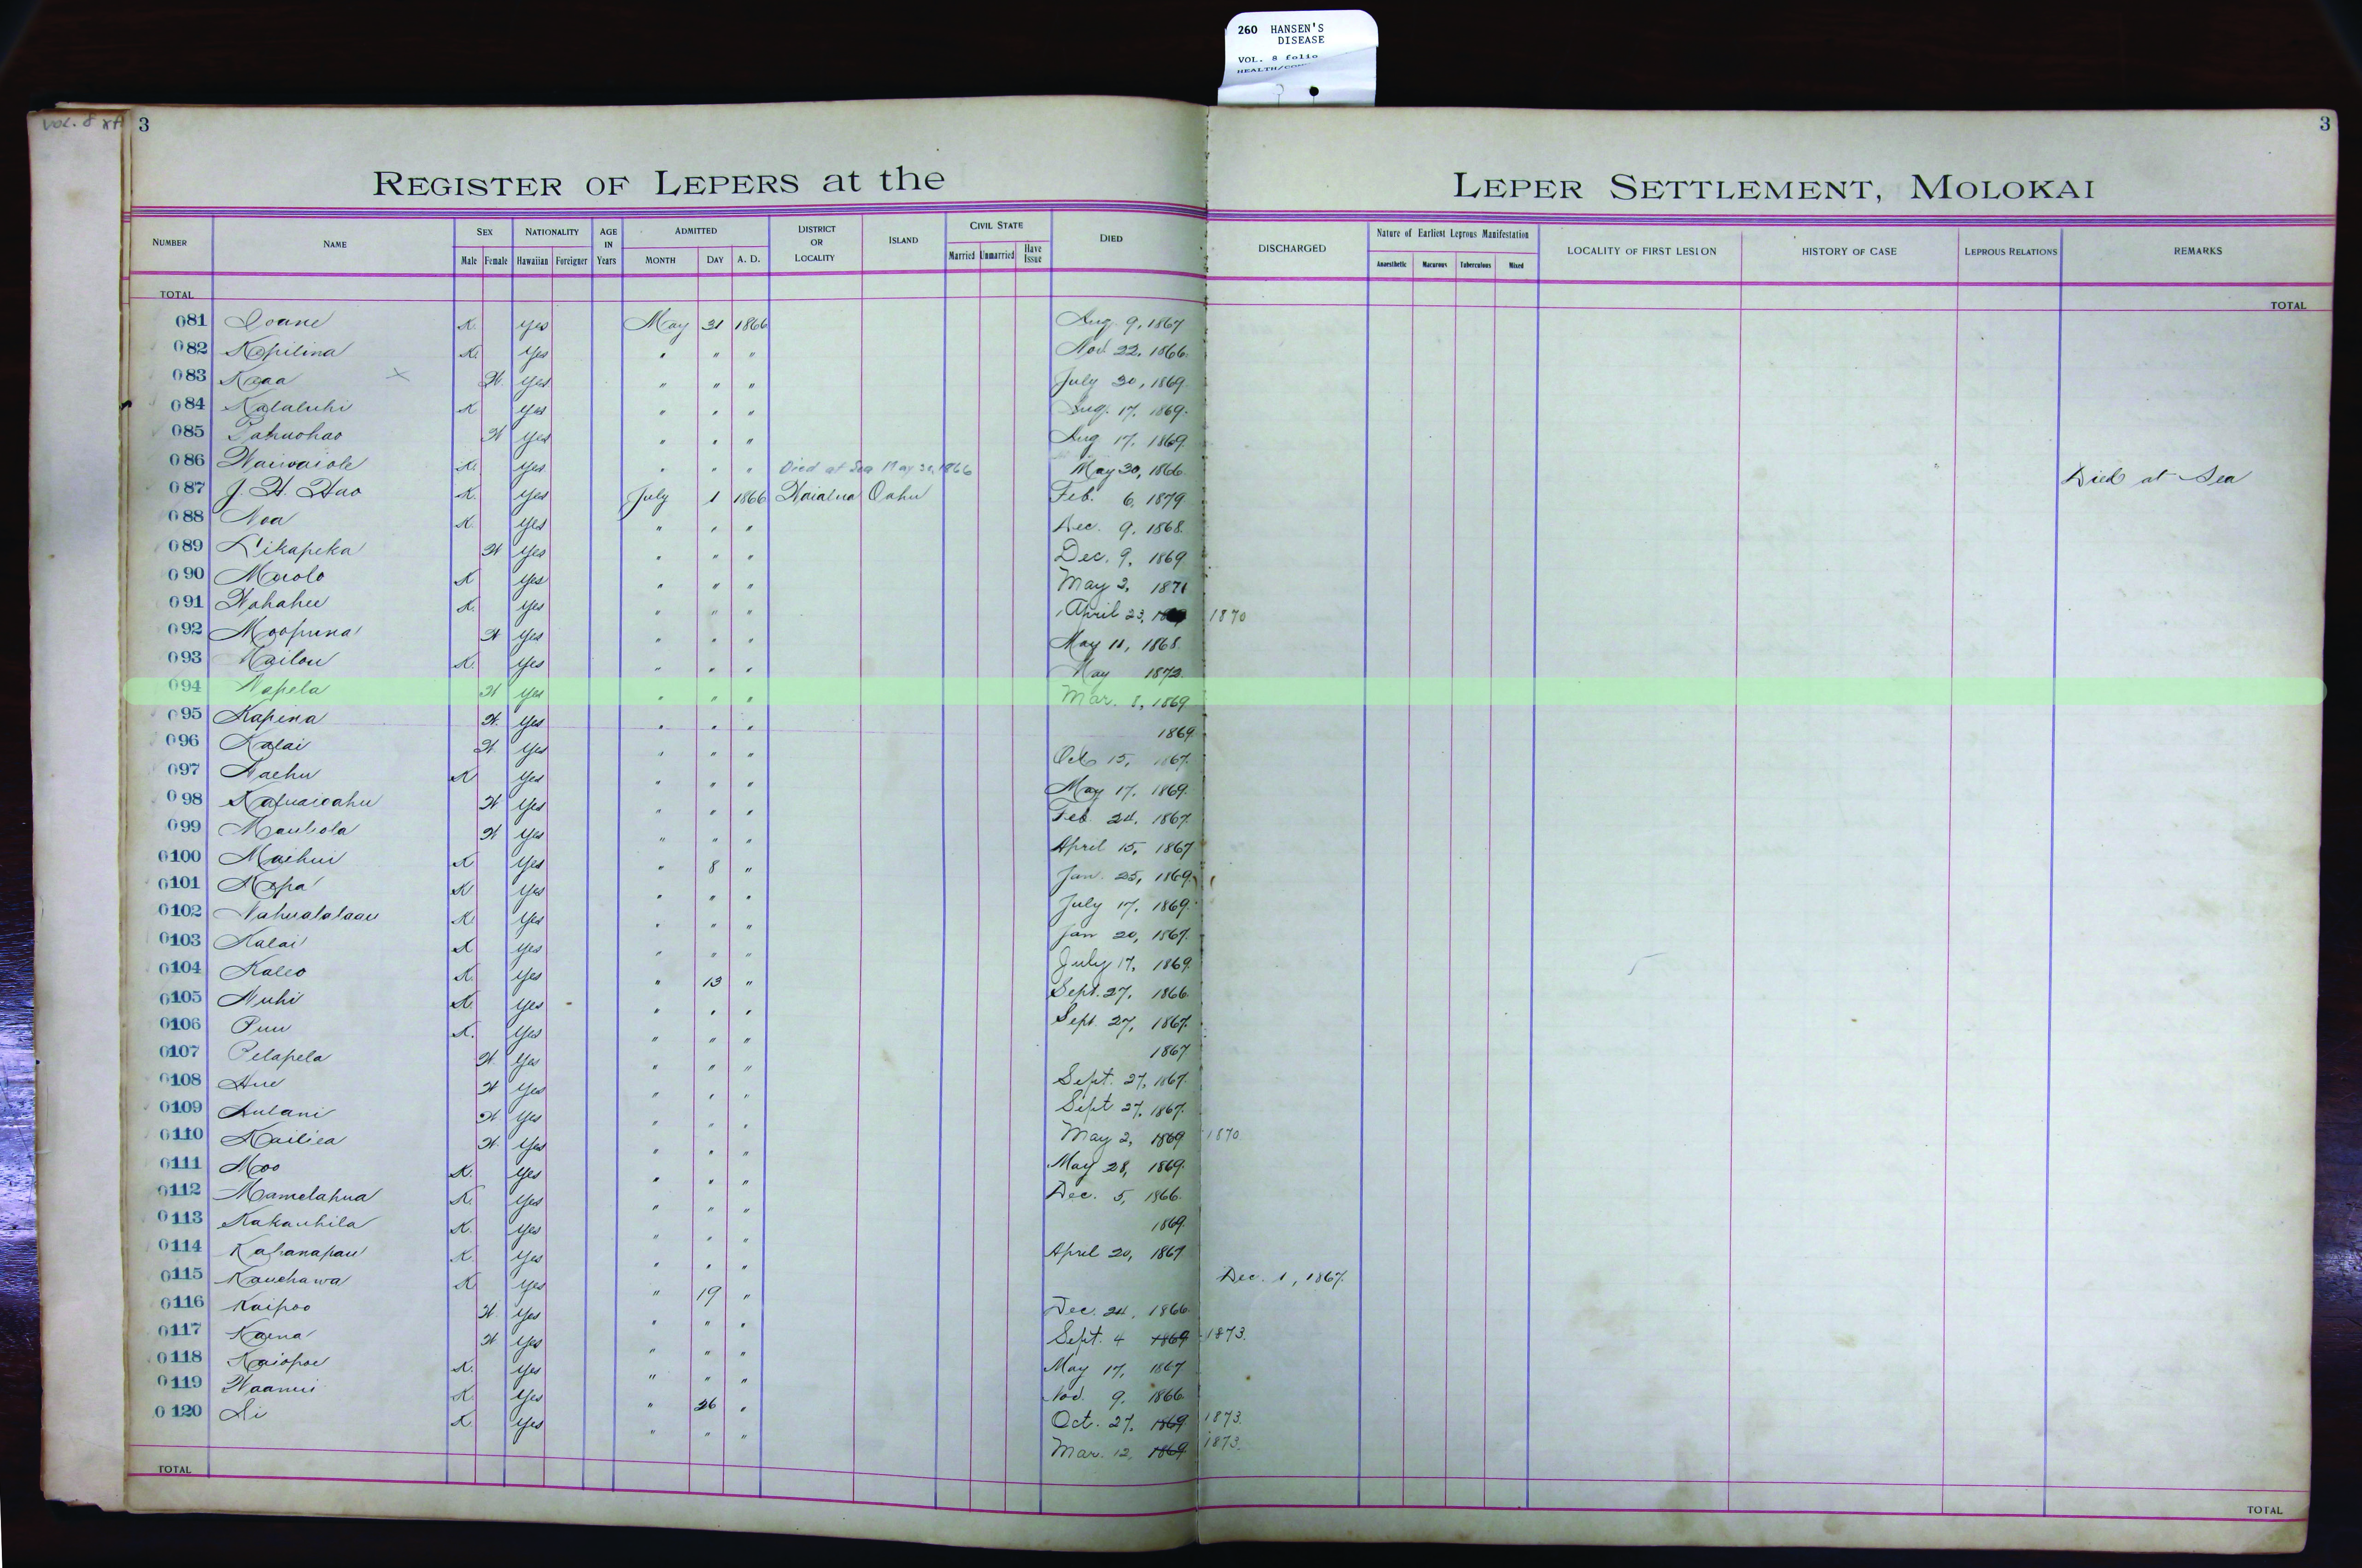 260 HANSEN'S
DISEASE
VOL. 8 folio
VOL. 8
3
3
REGISTER OF LEPERS at the LEPER SETTLEMENT, MOLOKAI
NUMBER NAME SEX NATIONALITY AGE IN Years ADMITTED DISTRICT OR LOCALITY ISLAND CIVIL STATE DIED DISCHARGED Nature of Earliest Leprous Manifestation LOCALITY OF FIRST LESION HISTORY OF CASE LEPROUS RELATIONS REMARKS
Male Female Hawaiian Foreigner MONTH DAY A. D. Married Unmarried Have Issue Anaesthetic Macurous Tuberculous Mixed
TOTAL TOTAL
081 Ioane K. Yes May 31 1866 Aug. 9, 1867
082 Kapilina K. Yes " " " Nov. 22, 1866.
083 Kaaa × W. Yes " " " July 30, 1869.
084 Kalaluhi K Yes " " " Aug. 17, 1869.
085 Pahuohao W Yes " " " Aug 17, 1869.
086 Waiwaiole K. Yes " " " Died at Sea May 30, 1866 May 30, 1866. Died at Sea
087 J. H. Hao K. Yes July 1 1866 Waialua Oahu Feb. 6, 1879
088 Noa K. Yes " " " Dec. 9, 1868.
089 Likapeka W Yes " " " Dec. 9, 1869
090 K Yes " " " May 2, 1871
091 Wahahee K. Yes " " " April 23, 1870
092 Moopuna W Yes " " " May 11, 1868.
093 Kailou K. Yes " " " May 1872
094 Napela W Yes " " " Mar. 8, 1869
095 Kapina W. Yes " " " 1869.
096 Kalai W Yes " " " Oct 15, 1867.
097 Naehu K Yes " " " May 17, 1869.
098 W Yes " " " Feb. 24, 1867.
099 Mauliola W Yes " " " April 15, 1867
0100 Maihui K Yes " 8 " Jan. 25, 1869.
0101 Mopa K Yes " " " July 17, 1869.
0102 Nahualalaau K. Yes " " " Jan 20, 1867.
0103 Kalai K Yes " " " July 17, 1869.
0104 Kaleo K. Yes " 13 " Sept. 27, 1866.
0105 Nuhi K. Yes " " " Sept. 27, 1867.
0106 Puu K. Yes " " " 1867
0107 Pelapela W Yes " " " Sept. 27, 1867.
0108 Hue W Yes " " " Sept 27, 1867.
0109 Lulani W. Yes " " " May 2, 1869 1870.
0110 Kailiea W. Yes " " " May 28, 1869.
0111 Moo K. Yes " " " Dec. 5, 1866.
0112 Mamelahua K. Yes " " " 1869.
0113 Kakauhila K. Yes " " " April 20, 1867
0114 Kahanapau K. Yes " " " Dec. 1, 1867.
0115 Kauehawa K. Yes " 19 " Dec. 24, 1866.
0116 Kaipoo W. Yes " " " Sept. 4 1869 1873.
0117 Kaena W Yes " " " May 17, 1867
0118 Kaiopoe K. Yes " " " Nov. 9, 1866.
0119 Waanui K. Yes " 26 " Oct. 27, 1869 1873.
0120 Li K. Yes " " " Mar. 12, 1869 1873.
TOTAL TOTAL